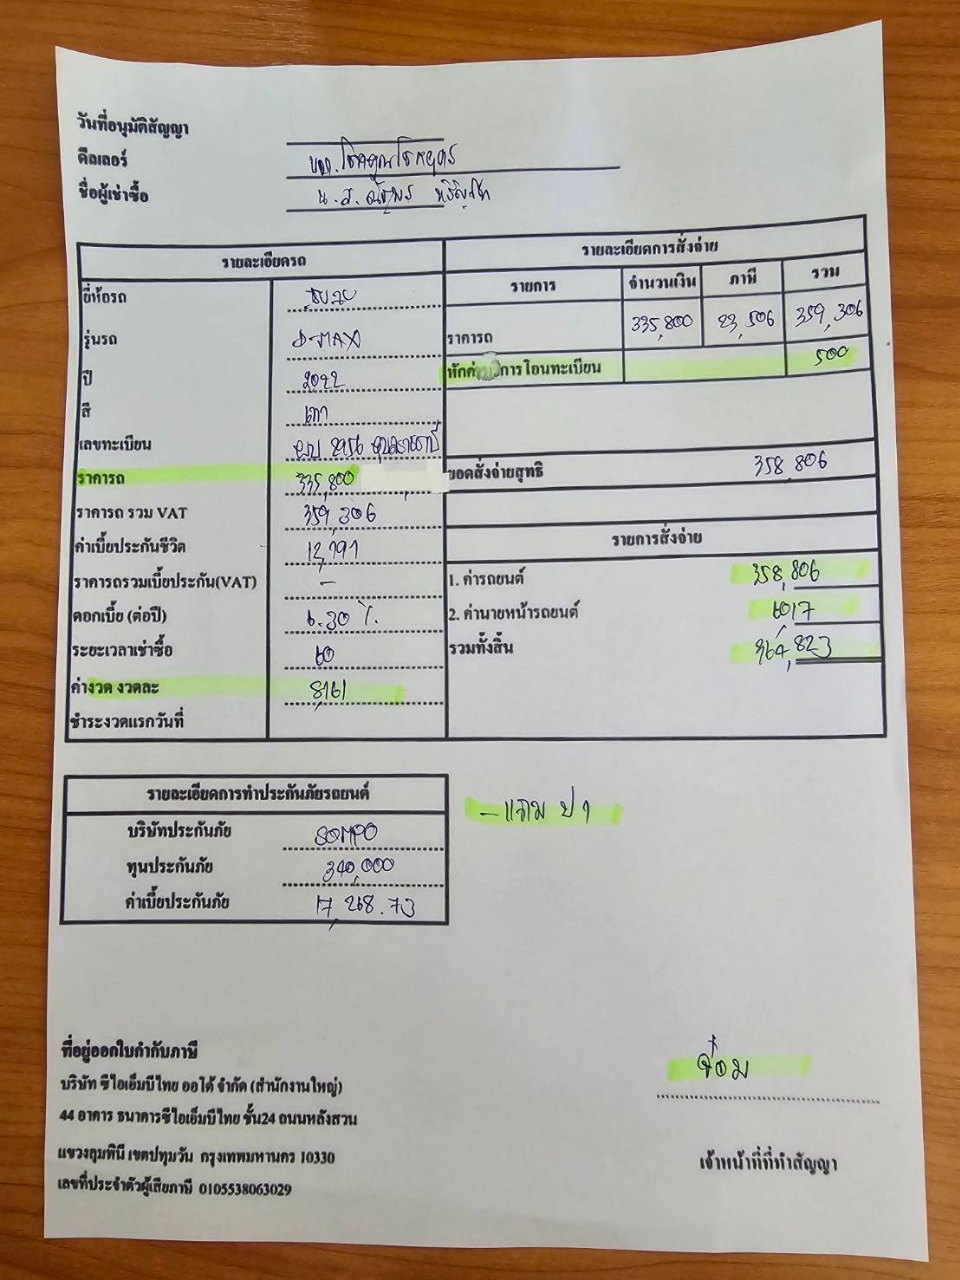 วันที่อนุมัติสัญญา
ดีลเลอร์
ชื่อผู้เช่าซื้อ น.ส.
รายละเอียดรถ
ยี่ห้อรถ อีซูซุ
รุ่นรถ D-MAX
ปี 2022
สี เทา
เลขทะเบียน 2956 อุบลราชธานี
ราคารถ 335,800
ราคารถ รวม VAT 359,306
ค่าเบี้ยประกันชีวิต
ราคารถรวมเบี้ยประกัน(VAT) -
ดอกเบี้ย (ต่อปี) 6.30 %
ระยะเวลาเช่าซื้อ 60
ค่างวด งวดละ 8,161
ชำระงวดแรกวันที่
รายละเอียดการสั่งจ่าย
รายการ จำนวนเงิน ภาษี รวม
ราคารถ 335,800 23,506 359,306
หักค่าบริการโอนทะเบียน 500
ยอดสั่งจ่ายสุทธิ 358,806
รายการสั่งจ่าย
1. ค่ารถยนต์ 358,806
2. ค่านายหน้ารถยนต์ 6,017
รวมทั้งสิ้น 364,823
รายละเอียดการทำประกันภัยรถยนต์
บริษัทประกันภัย SOMPO
ทุนประกันภัย 340,000
ค่าเบี้ยประกันภัย
- แถม ป 1
ที่อยู่ออกใบกำกับภาษี
บริษัท ซีไอเอ็มบีไทย ออโต้ จำกัด (สำนักงานใหญ่)
44 อาคาร ธนาคารซีไอเอ็มบีไทย ชั้น24 ถนนหลังสวน
แขวงลุมพินี เขตปทุมวัน กรุงเทพมหานคร 10330
เลขที่ประจำตัวผู้เสียภาษี 0105538063029
เจ้าหน้าที่ที่ทำสัญญา